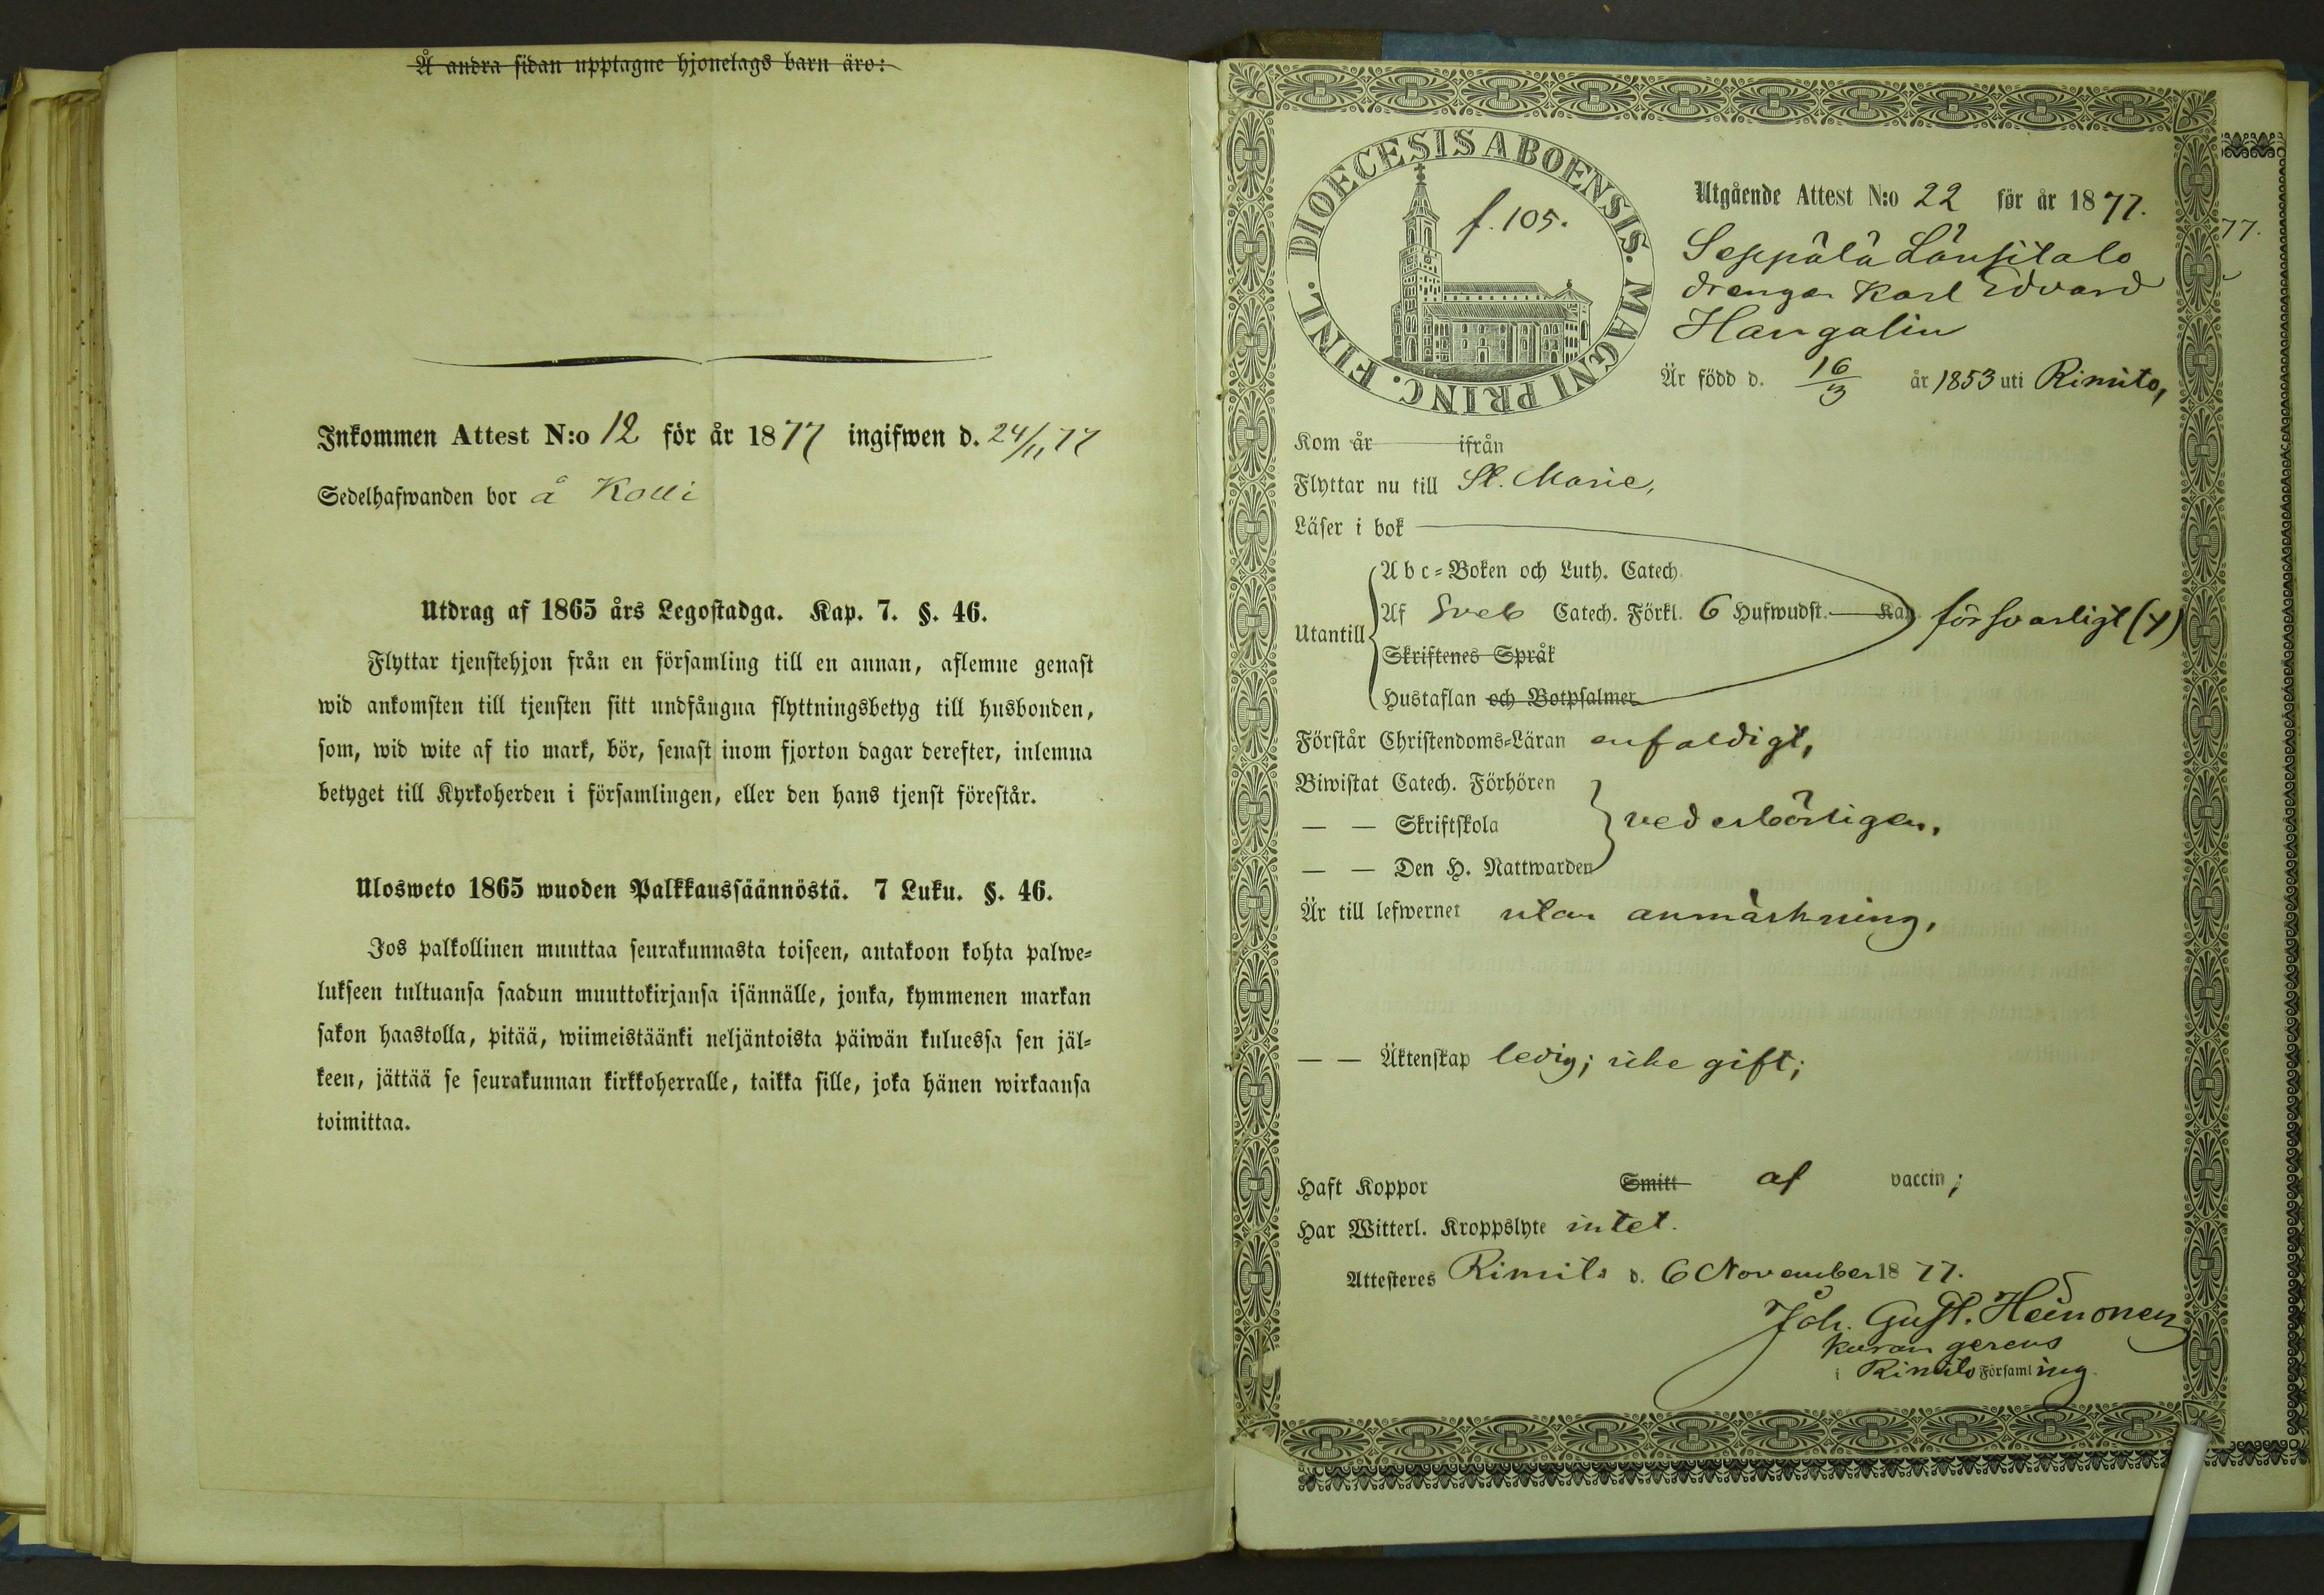 Å andra sidan upptagne hjonelags barn äro:
Inkommen Attest N:o 12 för år 1877 ingifwen d. 24/11 77
Sedelhafwanden bor å Kolli
Utdrag af 1865 års Legostadga. Kap. 7. §. 46.
Flyttar tjenstehjon från en församling till en annan, aflemne genast
wid ankomsten till tjensten sitt undfångna flyttningsbetyg till husbonden,
som, wid wite af tio mark, bör, senast inom fjorton dagar derefter, inlemna
betyget till Kyrkoherden i församlingen, eller den hans tjenst förestår.
Ulosweto 1865 wuoden Palkkaussäännöstä. 7 Luku. §. 46.
Jos palkollinen muuttaa seurakunnasta toiseen, antakoon kohta palwe=
lukseen tultuansa saadun muuttokirjansa isännälle, jonka, kymmenen markan
sakon haastolla, pitää, wiimeistäänki neljäntoista päiwän kuluessa sen jäl=
keen, jättää se seurakunnan kirkkoherralle, taikka sille, joka hänen wirkaansa
toimittaa.
DIOECESIS ABOENSIS. MAGNI PRINC. FINL.
f. 105.
Utgående Attest N:o 22 för år 1877.
77.
Seppälä Länsitalo
drengen Karl Edvard
Hangalin
Är född d. 16/3 år 1853 uti Rimito,
Kom år ifrån
Flyttar nu till St. Marie,
Läser i bok
Utantill
Abc=Boken och Luth. Catech.
Af Sveb Catech. Förkl. 6 Hufwudst. Kap. försvarligt (y)
Skriftenes Språk
Hustaflan och Botpsalmer
Förstår Christendoms=Läran enfaldigt,
Biwistat Catech. Förhören
— — Skriftskola vederbörligen,
— — Den H. Nattwarden
Är till lefwernet utan anmärkning,
— — Äktenskap ledig; icke gift;
Haft Koppor Smitt af vaccin;
Har Witterl. Kroppslyte intet.
Attesteres Rimito d. 6 November 1877.
Joh. Gust. Heinonen
kuran gerens
i Rimito Församling